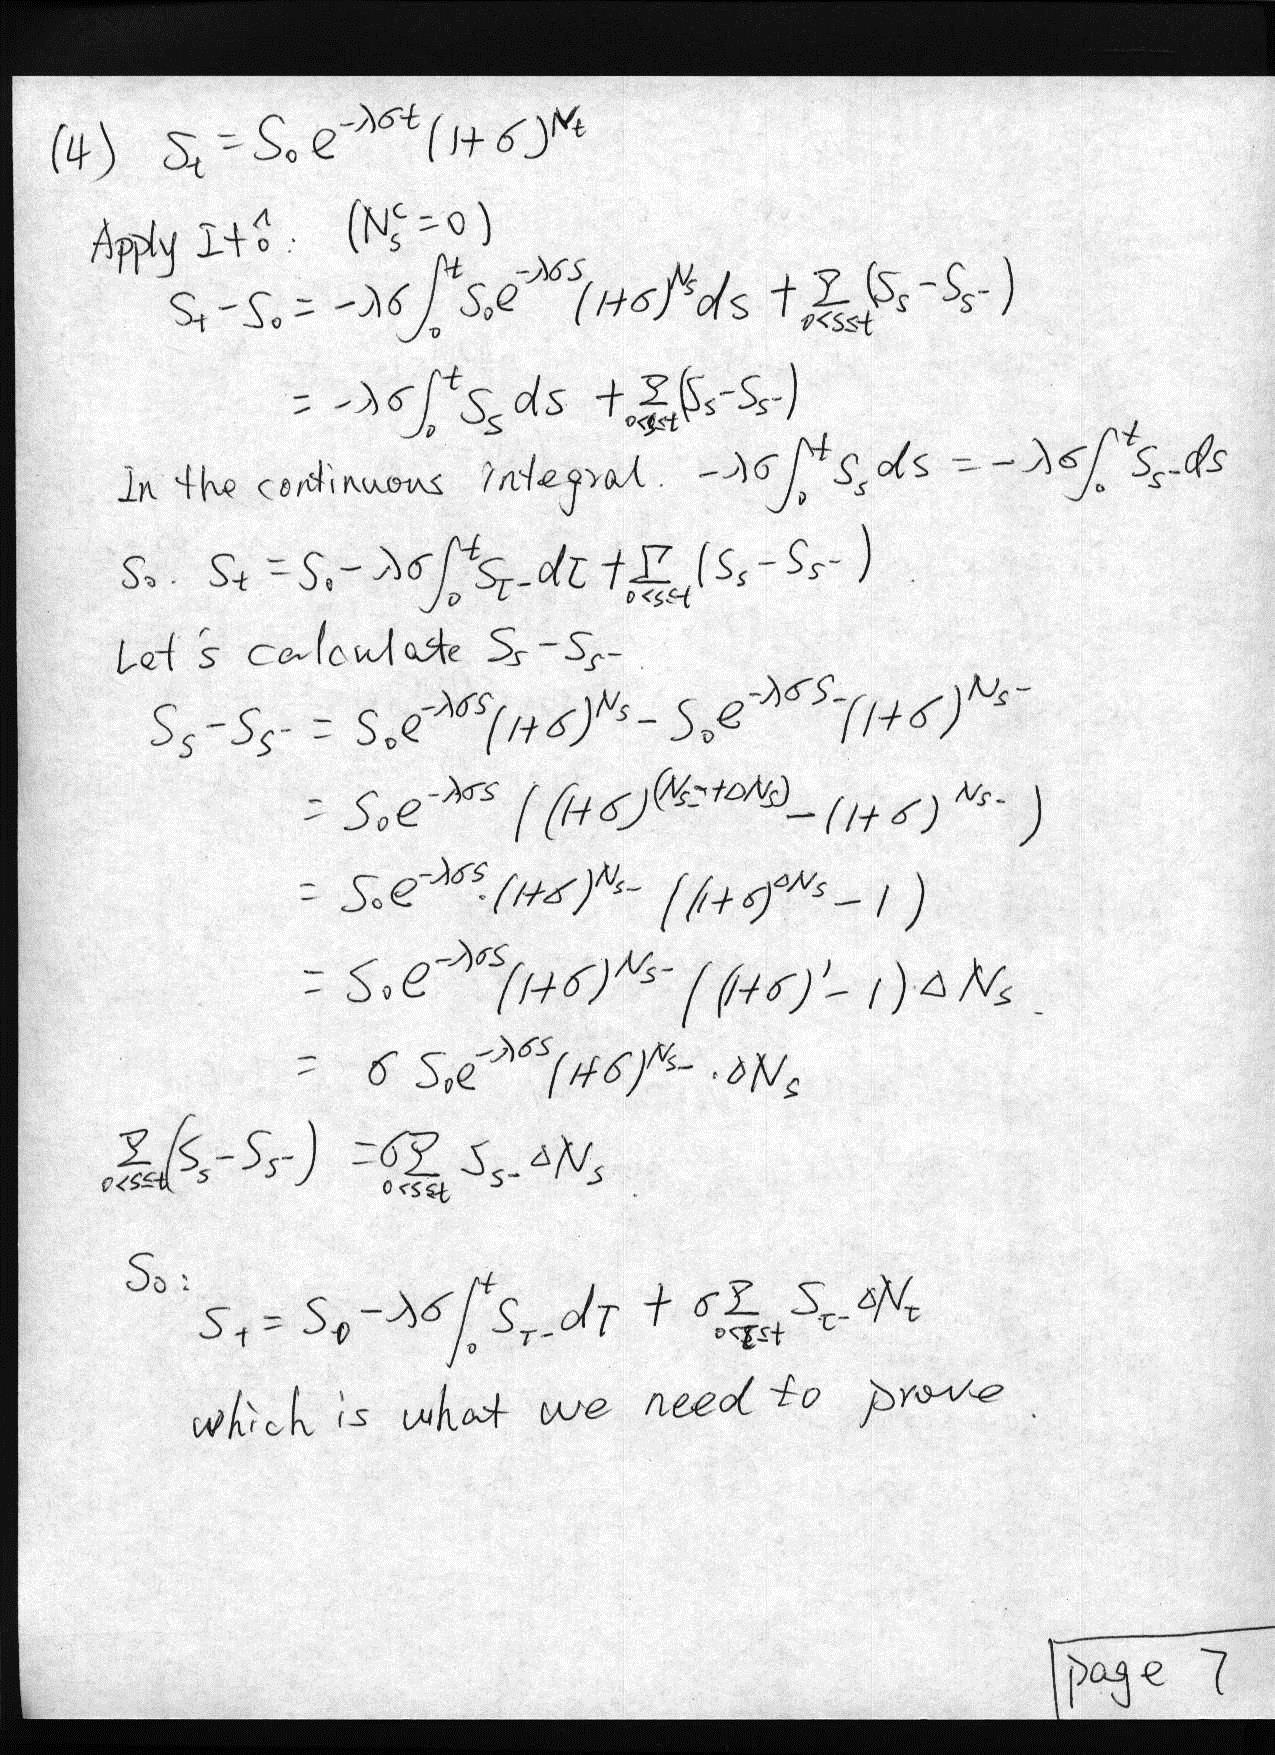 (4) S_t = S_0 e^{-λσt} (1+σ)^{N_t}
Apply Itô: (N_s^c = 0)
S_t - S_0 = -λσ ∫_0^t S_0 e^{-λσs} (1+σ)^{N_s} ds + Σ_{0<s≤t} (S_s - S_{s-})
= -λσ ∫_0^t S_s ds + Σ_{0<s≤t} (S_s - S_{s-})
In the continuous integral. -λσ ∫_0^t S_s ds = -λσ ∫_0^t S_{s-} ds
So. S_t = S_0 - λσ ∫_0^t S_{τ-} dτ + Σ_{0<s≤t} (S_s - S_{s-}).
Let's calculate S_s - S_{s-}.
S_s - S_{s-} = S_0 e^{-λσs} (1+σ)^{N_s} - S_0 e^{-λσs-} (1+σ)^{N_{s-}}
= S_0 e^{-λσs} ((1+σ)^{(N_{s-}+ΔN_s)} - (1+σ)^{N_{s-}})
= S_0 e^{-λσs} · (1+σ)^{N_{s-}} ((1+σ)^{ΔN_s} - 1)
= S_0 e^{-λσs} (1+σ)^{N_{s-}} ((1+σ)^1 - 1) · ΔN_s.
= σ S_0 e^{-λσs} (1+σ)^{N_{s-}} · ΔN_s
Σ_{0<s≤t} (S_s - S_{s-}) = σ Σ_{0<s≤t} S_{s-} ΔN_s.
So:
S_t = S_0 - λσ ∫_0^t S_{τ-} dτ + σ Σ_{0<τ≤t} S_{τ-} ΔN_τ
which is what we need to prove.
page 7